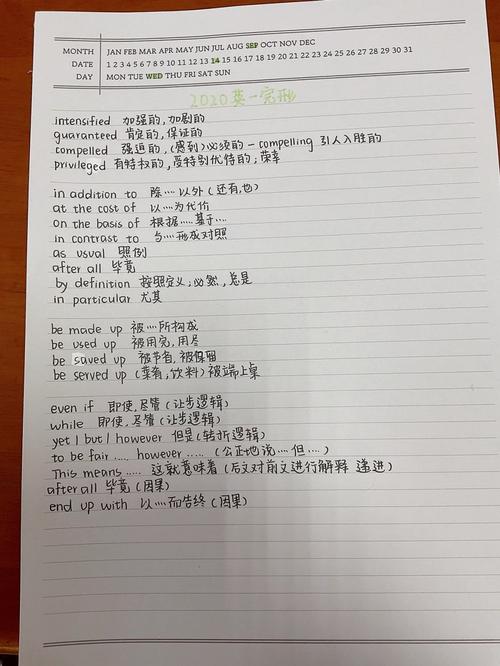 MONTH JAN FEB MAR APR MAY JUN JUL AUG SEP OCT NOV DEC
DATE 1 2 3 4 5 6 7 8 9 10 11 12 13 14 15 16 17 18 19 20 21 22 23 24 25 26 27 28 29 30 31
DAY MON TUE WED THU FRI SAT SUN
2020英一完形
intensified 加强的,加剧的
guaranteed 肯定的,保证的
compelled 强迫的,(感到)必须的-compelling 引人入胜的
privileged 有特权的,受特别优待的;荣幸
in addition to 除……以外(还有,也)
at the cost of 以……为代价
on the basis of 根据……基于……
in contrast to 与……形成对照
as usual 照例
after all 毕竟
by definition 按照定义;必然,总是
in particular 尤其
be made up 被……所构成
be used up 被用完,用尽
be saved up 被节省,被保留
be served up (菜肴,饮料)被端上桌
even if 即使,尽管(让步逻辑)
while 即使,尽管(让步逻辑)
yet / but / however 但是(转折逻辑)
to be fair .... however ..... (公正地说……但……)
This means ..... 这就意味着(后文对前文进行解释 递进)
after all 毕竟(因果)
end up with 以……而告终(因果)